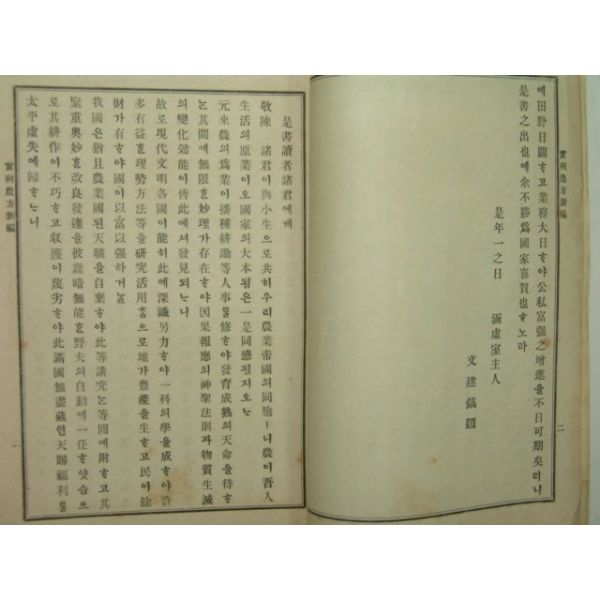 實利農方新編
二
에田野日闢ᄒᆞ고業務大日ᄒᆞ야公私富强之增進을不日可期矣리니
是書之出也에余不勝爲國家喜賀也ᄒᆞ노라
是年一之日 涵虛室主人
文建鎬題
是書讀者諸君에게
敬陳 諸君이與小生으로共히우리農業帝國의同胞ㅣ니農이吾人
生活의原業이오國家의大本됨은一是同感될지오는
元來農의爲業이播種耕耡等人事를修ᄒᆞ야發育成熟의天命을待ᄒᆞ
는其間에無限ᄒᆞᆫ妙理가存在ᄒᆞ야因果報應의神聖法則과物質生滅
의變化効能이皆此에셔發見되느니
故로現代文明各國이能히此에深識努力ᄒᆞ야一科의學을成ᄒᆞ야許
多有益ᄒᆞᆫ理勢方法等을硏究活用ᄒᆞᆷ으로地가豊穰을生ᄒᆞ고民이餘
財가有ᄒᆞ야國이以富以强하거ᄂᆞᆯ
我國은猶且農業國된天職을自棄ᄒᆞ야此等講究ᄂᆞᆫ等閒에附ᄒᆞ고其
緊重奧妙ᄒᆞᆫ改良發達을彼蠢暗無能ᄒᆞᆫ野夫의自動에一任ᄒᆞ얏슴으
로其耕作이不巧ᄒᆞ고收穫이薄劣ᄒᆞ야此滿國無盡藏인天賜福利를
太平虛失에歸ᄒᆞᄂᆞ니
實利農方新編
一